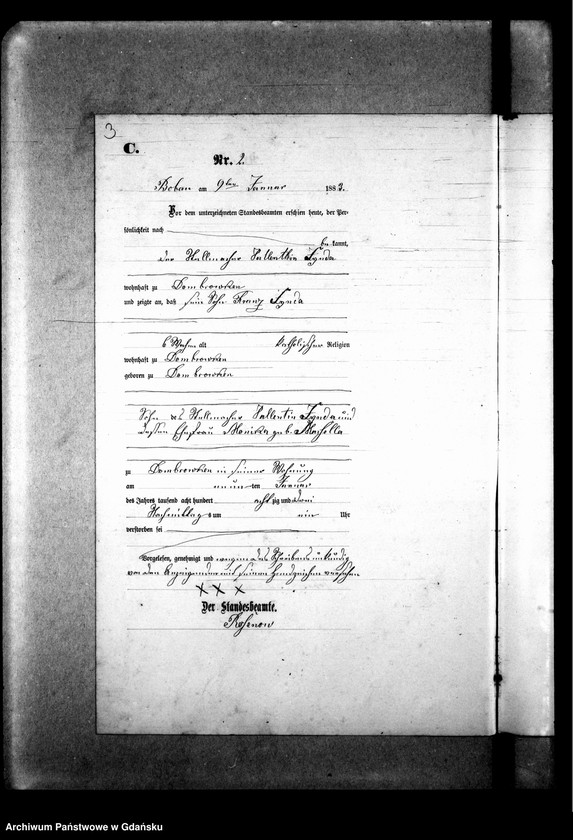 3
C.
Nr. 2.
Boban am 9ten Januar 1883.
Vor dem unterzeichneten Standesbeamten erschien heute, der Per-
sönlichkeit nach
be kannt,
der Vallentin Zynda
wohnhaft zu Dombrowken
und zeigte an, daß sein Sohn Franz Zynda
6 Wochen alt katholischer Religion
wohnhaft zu Dombrowken
geboren zu Dombrowken
Sohn des Vallentin Zynda und
dessen Ehefrau Monika geb.
zu Dombrowken in seiner Wohnung
am neun ten Januar
des Jahres tausend acht hundert acht zig und drei
Nachmittags um ein Uhr
verstorben sei
Vorgelesen, genehmigt und wegen des Schreibens unkundig
von dem Anzeigenden mit seinem Handzeichen versehen
X X X
Der Standesbeamte.
Archiwum Państwowe w Gdańsku